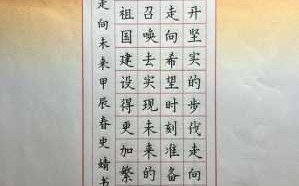 开坚实的步伐走向
走向希望时刻准备
召唤去实现未来的
祖国建设得更加繁
走向未来甲辰春史婧书